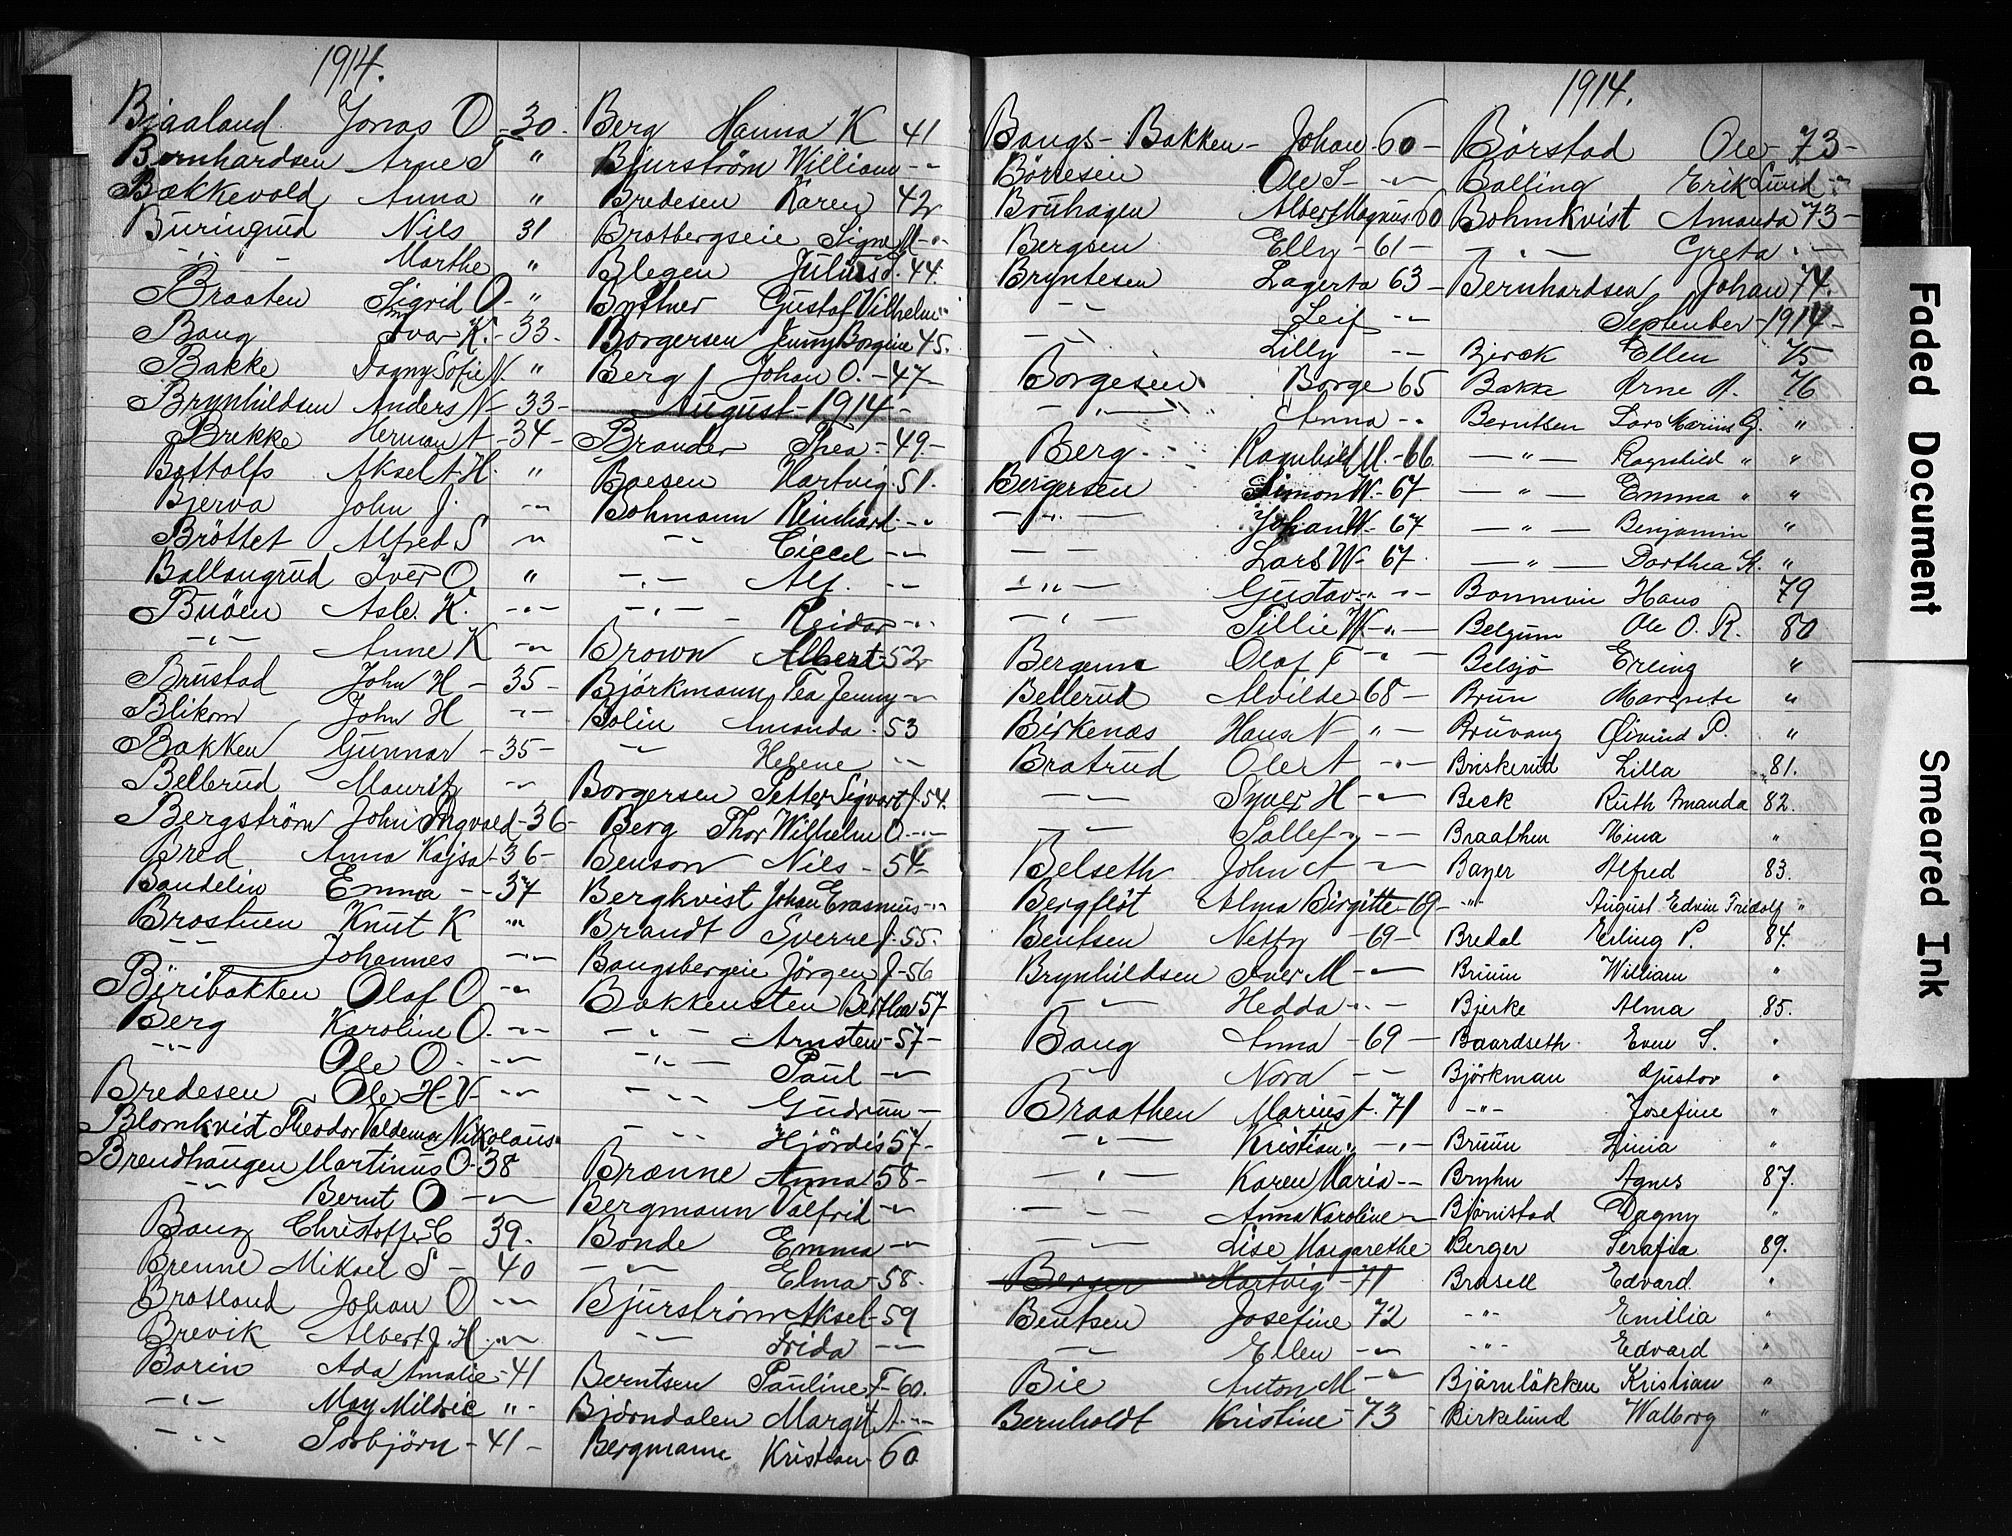 1914.
Bjaaland Jonas O - 30 -
Bernhardsen Arne T "
Bækkevold Anna "
Buringrud Nils 31
- " - Marthe "
Braaten Sigrid O - "
Bang Ivar K. - 33 -
Bakke Dagny Sofie N. "
Brynhildsen Anders N - 33 -
Brekke Herman A - 34 -
Bottolfs Aksel A. H. "
Bjerva John J. - " -
Bröttet Alfred S "
Ballangrud Iver O. "
Buöen Asle. K. - " -
- " - Anne K - " -
Brustad John H - 35 -
Blikom John H - " -
Bakken Gunnar - 35 -
Bellerud Mauritz - " -
Bergström John Ingvald - 36 -
Bred Anna Kajsa - 36 -
Bandelin Emma - - 37
Brostuen Knut K "
- " - Johannes - " -
Biribakken Olaf O - " -
Berg Karoline O. - " -
- " - Ole O - - " -
Bredesen Ole H. V - " -
Blomkvist Theodor Valdemar Nikolaus "
Brendhaugen Martinus O - 38
- " - Bernt O - " -
Bang Christoffer C 39 -
Brenne Mikael S - 40
Brasland Johan O - " -
Brevik Albert J. H. - " -
Borin Ada Amalie - 41
- " - May Mildrie " -
- " - Torbjörn - 41 -
Berg Hanna K 41
Bjurström William - " -
Bredesen Karen 42
Bratbergseie Signe M - " -
Blegen Julius J. 44.
Byttner Gustaf Vilhelm "
Borgersen Jenny Borgine 45.
Berg Johan O. - 47 -
August - 1914 -
Brander Thea - 49 -
Boesen Hartvig - 51.
Bohmann Reinhard - " -
- " - Ciccel - " -
- " - Alf. - " -
- " - Reidar - " -
Brown Albert 52
Björkmann Tea Jenny - " -
Bolin Amanda. 53
- " - Helene - " -
Borgersen Petter Sigvart J. 54.
Berg Thor Wilhelm O. - " -
Benson Nils - 54 -
Bergkvist Johan Erasmus - " -
Brandt Sverre J. 55.
Bangsbergeie Jörgen J - 56
Bakkensten Bertha 57
- " - Arnsten - 57 -
- " - Paul - " -
- " - Gudrun -
- " - Hjördis 57 -
Brænne Anna 58 -
Bergmann Valfrid - " -
Bonde Emma - " -
- " - Elma - 58 -
Bjurström Aksel - 59
- " - Frida - " -
Berntsen Pauline F - 60.
Björndalen Margit A. - " -
Bergmann Kristian 60
1914.
Bangs - Bakken - Johan 60 -
Börresen Ole S - - " -
Bruhagen Albert Magnus 60
Bergsen Elly - 61 -
Bryntesen Lagerta 63 -
- " - Leif - " -
- " - Lilly - " -
Borgesen Borge 65
- " - Anna - "
Berg Ragnhild M. - 66.
Bergersen Simon W - 67
- " - Johan W - 67
- " - Lars W - 67
- " - Gustav - " -
- " - Tillie W - " -
Bergene Olaf T - " -
Bellerud Alvilde 68 -
Birkenæs Hans N " -
Bratrud Ole A - " -
- " - Syver H - " -
- " - Tollef - " -
Belseth John A - " -
Bergflöt Alma Birgitte - 69 -
Bentsen Netty - 69 -
Brynhildsen Iver M - " -
- " - Hedda - " -
Bang Anna - 69 -
- " - Nora - " -
Braathen Marius A. 71
- " - Kristian - " -
- " - Karen Maria - -
- " - Anna Karoline - "
- " - Lise Margarethe
Berger Hartvig - 71
Bentsen Josefine - 72
- " - Ellen - " -
Bie Anton M - " -
Bernholdt Kristine - 73
Börstad Ole - 73 -
Balling Erik Lund - " -
Bohmkvist Amanda 73 -
- " - Greta - " -
Bernhardsen Johan 74.
September - 1914 -
Bjerck Ellen 75
Bakke Arne A. 76
Berntsen Lars Marius G. "
- " - Ragnhild " "
- " - Emma " "
- " - Benjamin "
- " - Dorthea K. "
Bommen Hans 79
Belgum Ole O. R. 80
Belsjö Erling "
Brun Margrete "
Bruvang Øivind P. "
Briskerud Lilla 81.
Beck Ruth Amanda 82.
Braathen Mina "
Bayer Alfred 83.
- " - August Edvin Fridolf "
Bredal Erling P. 84.
Bruun William "
Bjerke Alma 85.
Baardseth Even S. "
Björkman Gustav "
- " - Josefine "
Bruun Linia "
Bryhn Agnes 87.
Björnstad Dagny "
Berger Serafia 89.
Brasell Edvard "
- " - Emilia "
- " - Edvard "
Björnlökken Kristian "
Birkelund Walborg "
Faded Document
Smeared Ink